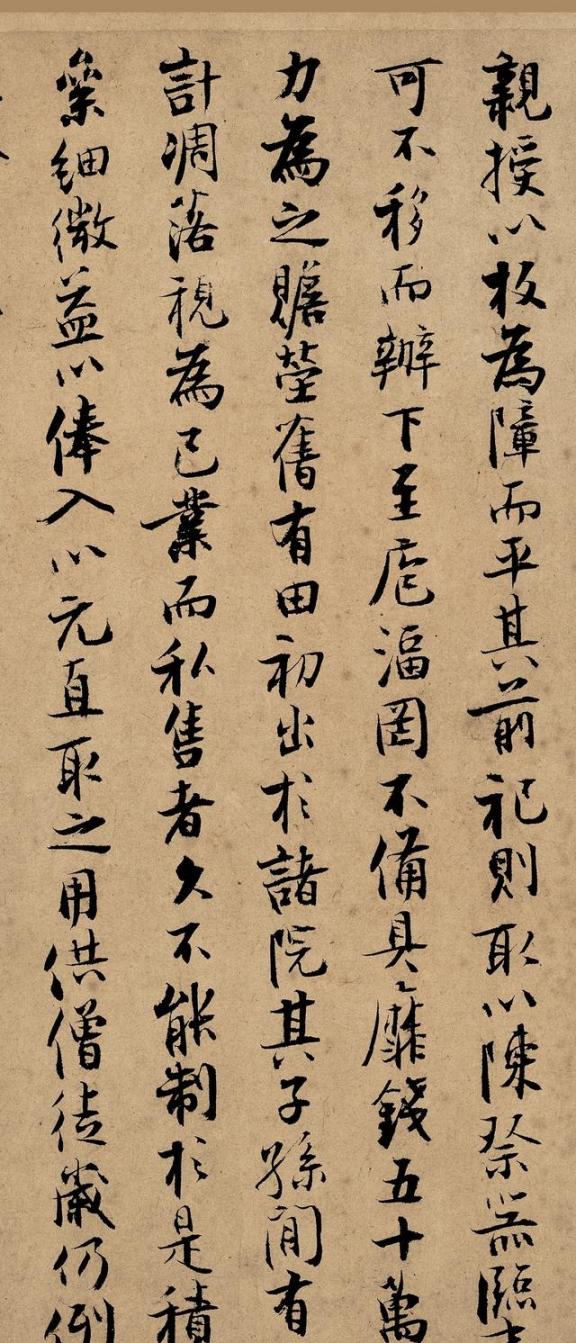 親授以板為障而平其前祀則取以陳祭器臨
可不移而辦下至庖湢罔不備具靡錢五十萬
力為之贍塋舊有田初出於諸院其子孫間有
計凋落視為己業而私售者久不能制於是積
絫細微益以俸入以元直取之用供僧徒歲仍例